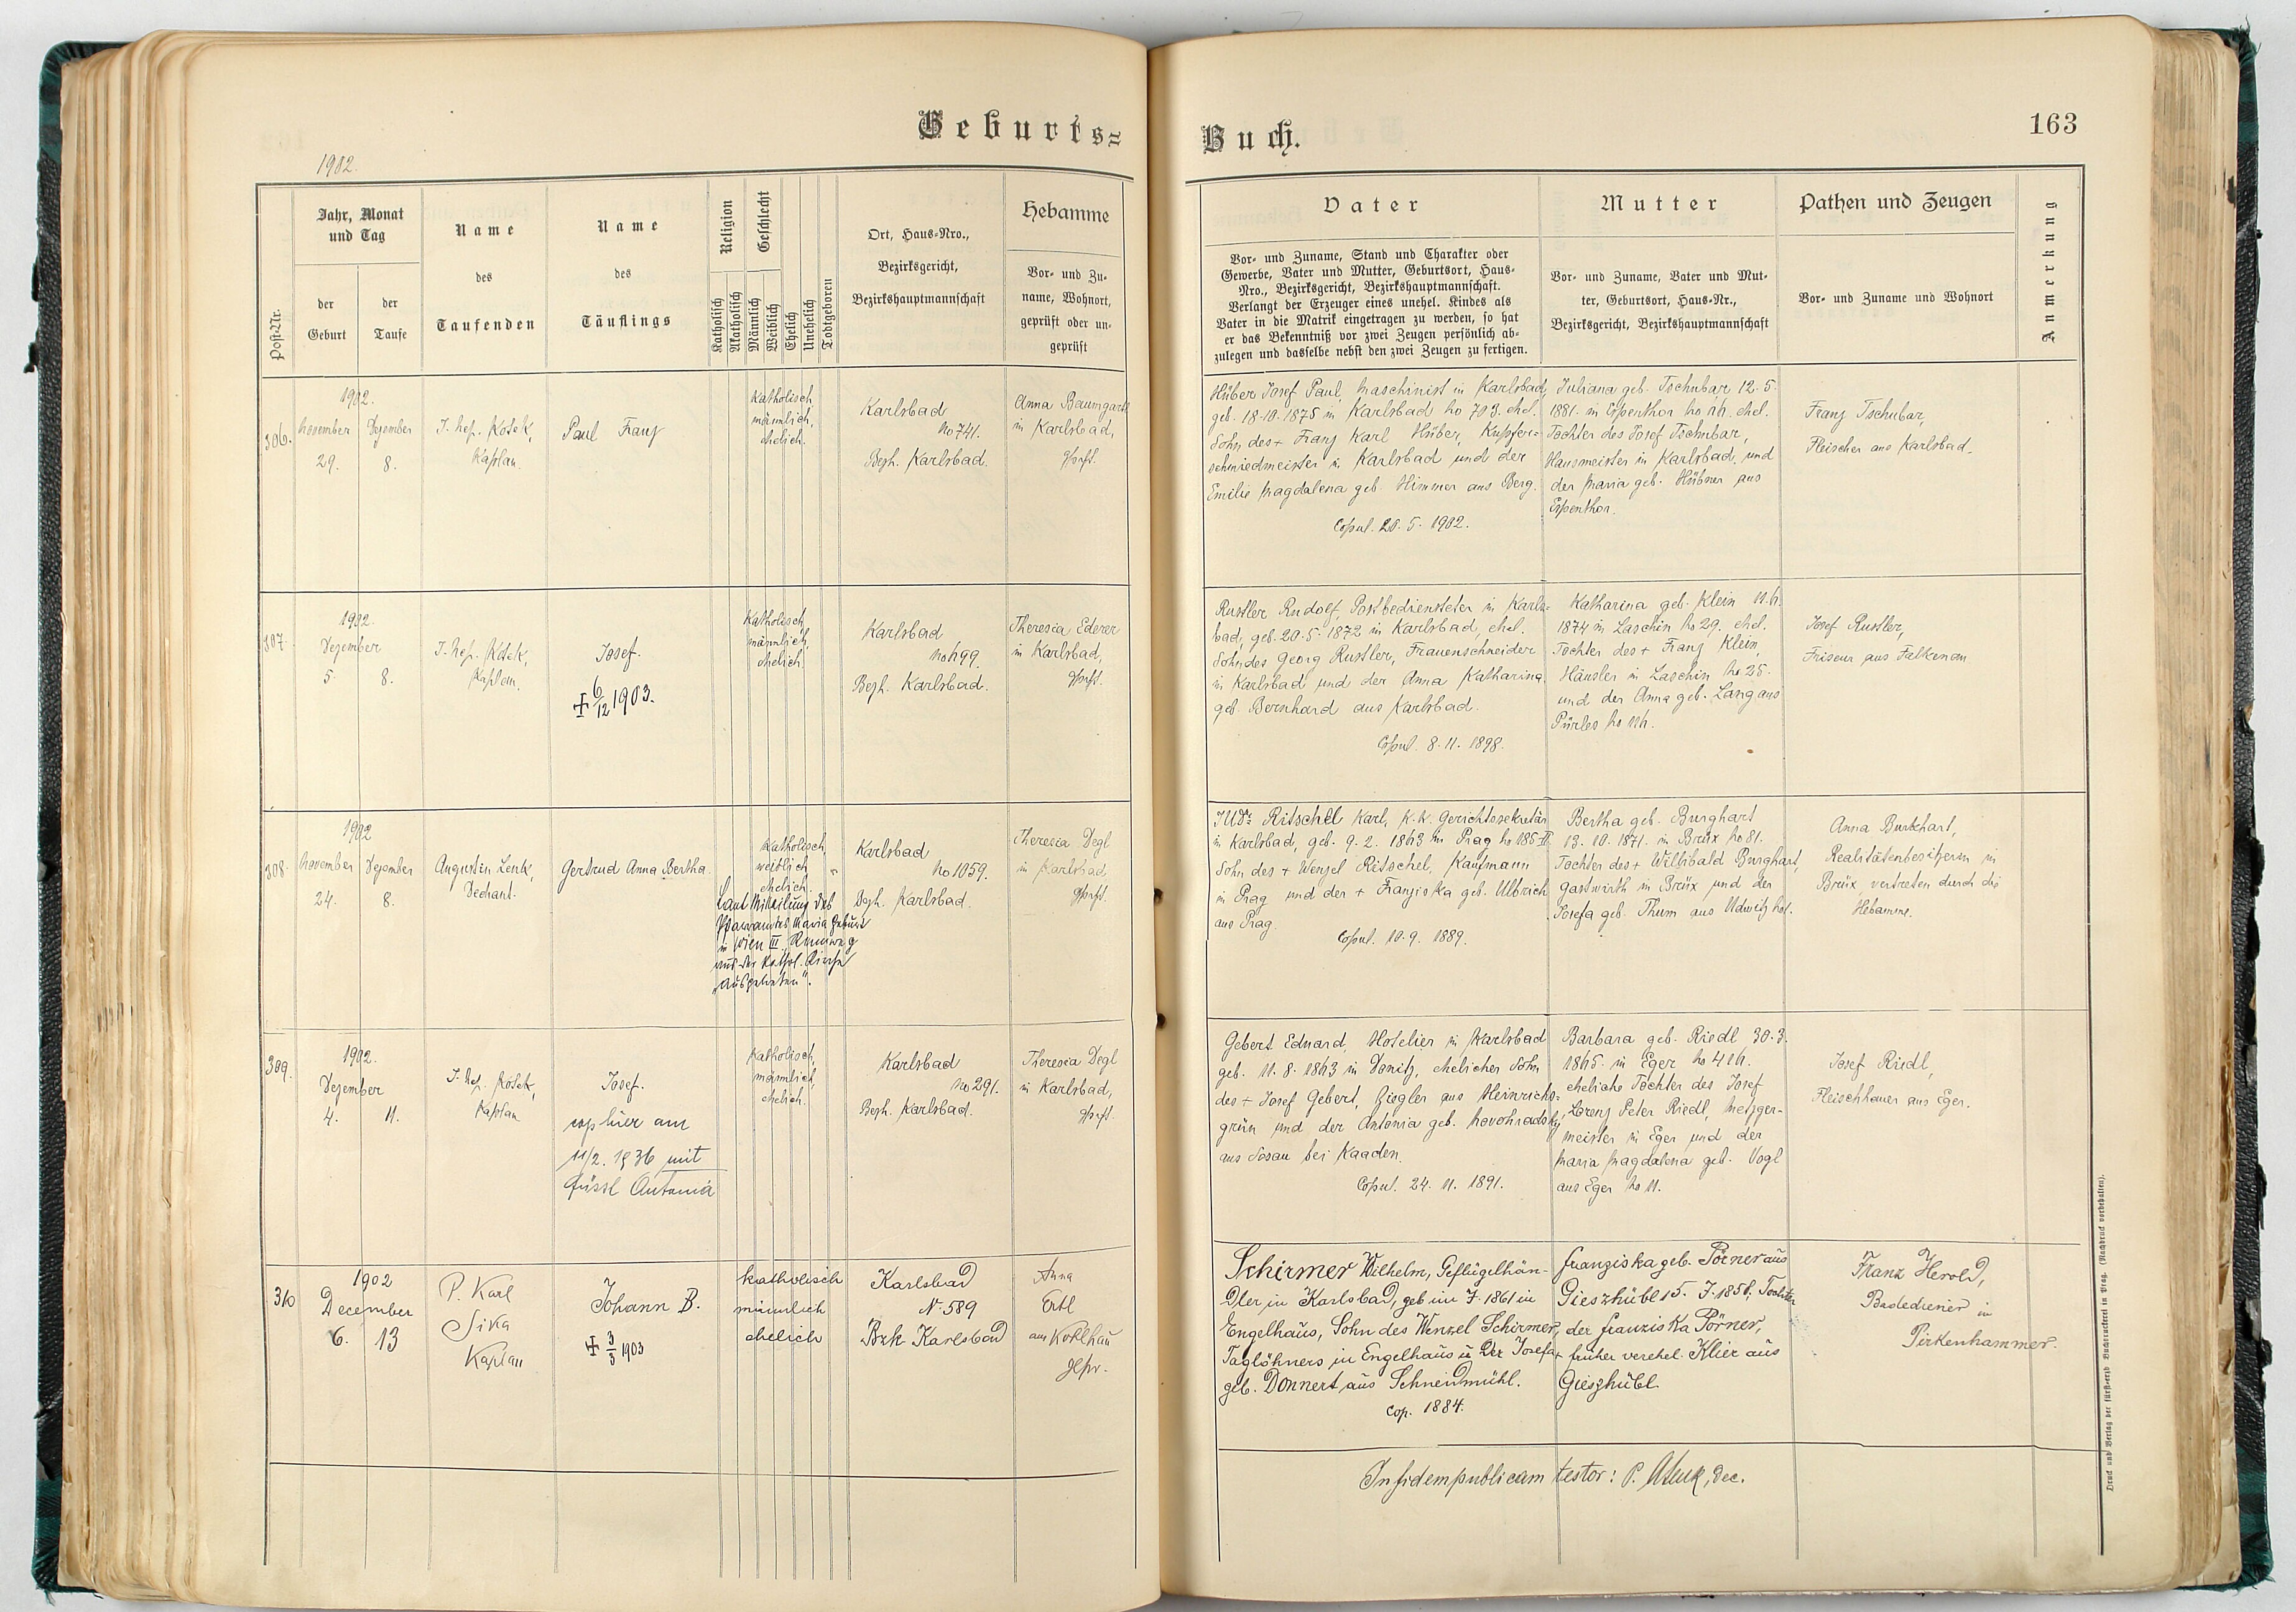 Geburts=
Buch.
163
1902.
Post-Nr.
Jahr, Monat
und Tag
der
Geburt
der
Taufe
Name
des
Taufenden
Name
des
Täuflings
Religion
Katholisch
Akatholisch
Geschlecht
Männlich
Weiblich
Ehelich
Unehelich
Todtgeboren
Ort, Haus=Nro.,
Bezirksgericht,
Bezirkshauptmannschaft
Hebamme
Vor= und Zu=
name, Wohnort,
geprüft oder un=
geprüft
Vater
Vor= und Zuname, Stand und Charakter oder
Gewerbe, Vater und Mutter, Geburtsort, Haus=
Nro., Bezirksgericht, Bezirkshauptmannschaft.
Verlangt der Erzeuger eines unehel. Kindes als
Vater in die Matrik eingetragen zu werden, so hat
er das Bekenntniß vor zwei Zeugen persönlich ab=
zulegen und dasselbe nebst den zwei Zeugen zu fertigen.
Mutter
Vor= und Zuname, Vater und Mut=
ter, Geburtsort, Haus=Nr.,
Bezirksgericht, Bezirkshauptmannschaft
Pathen und Zeugen
Vor= und Zuname und Wohnort
Anmerkung
306.
1902.
November
29.
Dezember
8.
J. Nep. Kosek,
Kaplan.
Paul Franz
Katholisch
männlich,
ehelich.
Karlsbad
No 741.
Bezh. Karlsbad.
Anna Baumgartl
in Karlsbad,
gprft.
Hüber Josef Paul, Maschinist in Karlsbad,
geb. 18.10.1875 in Karlsbad No 793. ehel.
Sohn des + Franz Karl Hüber, Kupfer=
schmiedmeister in Karlsbad und der
Emilie Magdalena geb. Himmer aus Berg.
Copul. 20. 5. 1902.
Juliana geb. Tschubar 12. 5.
1881. in Espenthor No ehel.
Tochter des Josef Tschubar,
Hausmeister in Karlsbad, und
der Maria geb. Hübner aus
Espenthor.
Franz Tschubar,
Fleischer aus Karlsbad.
307.
1902.
Dezember
5.
8.
J. Nep. Kosek,
Kaplan.
Josef.
+ 6/12 1903.
Katholisch,
männlich,
ehelich.
Karlsbad
Bezh. Karlsbad.
Theresia Ederer
in Karlsbad,
gprft.
Rustler Rudolf, Postbediensteter in Karls=
bad, geb. 20. 5. 1872 in Karlsbad, ehel.
Sohn des Georg Rustler, Frauenschneider
in Karlsbad und der Anna Katharina
geb. Bernhard aus Karlsbad.
Copul. 8. 11. 1898.
Katharina geb. Klein
1874 in Laschin No 29. ehel.
Tochter des + Franz Klein,
Häusler in Laschin No 25.
und der Anna geb. Lang aus
Pürles No
Josef Rustler,
Friseur aus Falkenau
308.
1902
November
24.
Dezember
8.
Augustin Lenk,
Dechant.
Gertrud Anna Bertha.
Katholisch,
weiblich
ehelich.
Laut Mitteilung des
Pfarramtes Maria Geburt
in Wien III. Rennweg
aus der kathol. Kirche
"ausgetreten".
Karlsbad
No 1059.
Bezh. Karlsbad.
Theresia Degl
in Karlsbad,
gprft.
JUDr. Ritschel Karl, K. K. Gerichtssekretär
in Karlsbad, geb. 9. 2. 1863 in Prag No 185 II
Sohn des + Wenzel Ritschel, Kaufmann
in Prag und der + Franziska geb. Ulbrich
aus Prag.
Copul. 10. 9. 1889.
Bertha geb. Burghart
13. 10. 1871. in Brüx No 81.
Tochter des + Willibald Burghart,
Gastwirth in Brüx und der
Josefa geb. Thum aus Udwitz
Anna Burkhart,
Realitätenbesitzerin in
Brüx, vertreten durch die
Hebamme.
309.
1902.
Dezember
4.
11.
J. Nep. Kosek,
Kaplan
Josef.
cop hier am
11/2. 1936 mit
Füssl Antonia
Katholisch,
männlich,
ehelich.
Karlsbad
No 291.
Bezh. Karlsbad.
Theresia Degl
in Karlsbad,
gprft.
Gebert Eduard, Hotelier in Karlsbad
geb. 11. 8. 1863 in Donitz, ehelicher Sohn
des + Josef Gebert, Ziegler aus Heinrichs=
grün und der Antonia geb. Novohradsky
aus Sosau bei Kaaden.
Copul. 24. 11. 1891.
Barbara geb. Riedl 30. 3.
1865. in Eger No
eheliche Tochter des Josef
Lorenz Peter Riedl, Metzger-
meister in Eger und der
Maria Magdalena geb. Vogl
aus Eger No 11.
Josef Riedl,
Fleischhauer aus Eger.
310
1902
December
6.
13
P. Karl
Sika
Kaplan
Johann B.
+ 3/3 1903
katholisch
männlich
ehelich
Karlsbad
N. 589
Bzk Karlsbad
Anna
Ertl
am Kohlhau
gepr.
Schirmer Wilhelm, Geflügelhän-
dler in Karlsbad, geb. im J. 1861 in
Engelhaus, Sohn des Wenzel Schirmer,
Taglöhners in Engelhaus u. der Josefa
geb. Donnert aus Schneidmühl.
Cop. 1884.
Franziska geb. Pörner aus
Gieszhübl 5. 7. 1858, Tochter
der Franziska Pörner,
früher verehel. Klier aus
Gieszhübl.
Franz Herold,
Badediener in
Pirkenhammer.
In fidem publicam testor: P. A Lenk, Dec.
Druck und Verlag der fürsterzb. Buchdruckerei in Prag. (Nachdruck vorbehalten).